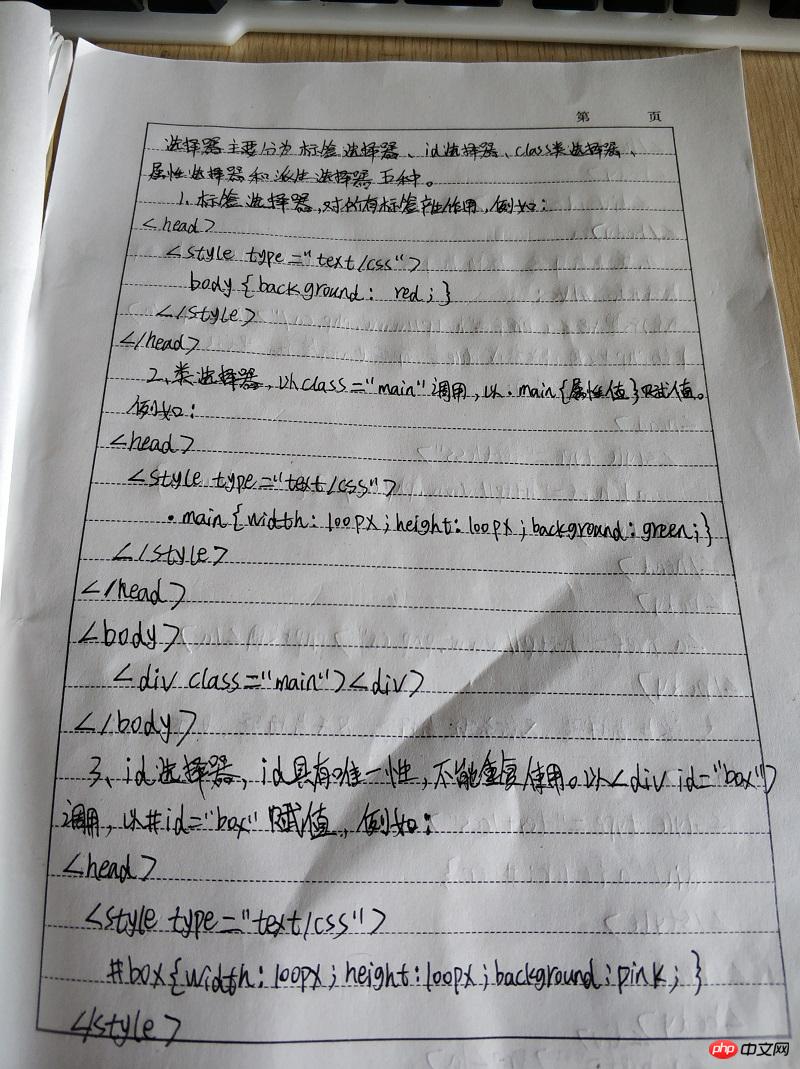 第 页
选择器主要分为标签选择器、id选择器、class类选择器、
属性选择器和派生选择器五种。
1、标签选择器,对所有标签产生作用,例如:
<head>
<style type="text/css">
body{background: red;}
</style>
</head>
2、类选择器,以class="main"调用,以.main{属性值}赋值。
例如:
<head>
<style type="text/css">
.main{width:100px;height:100px;background:green;}
</style>
</head>
<body>
<div class="main"><div>
</body>
3、id选择器,id具有唯一性,不能重复使用。以<div id="box">
调用,以#id="box"赋值,例如:
<head>
<style type="text/css">
#box{width:100px;height:100px;background:pink;}
</style>
php 中文网